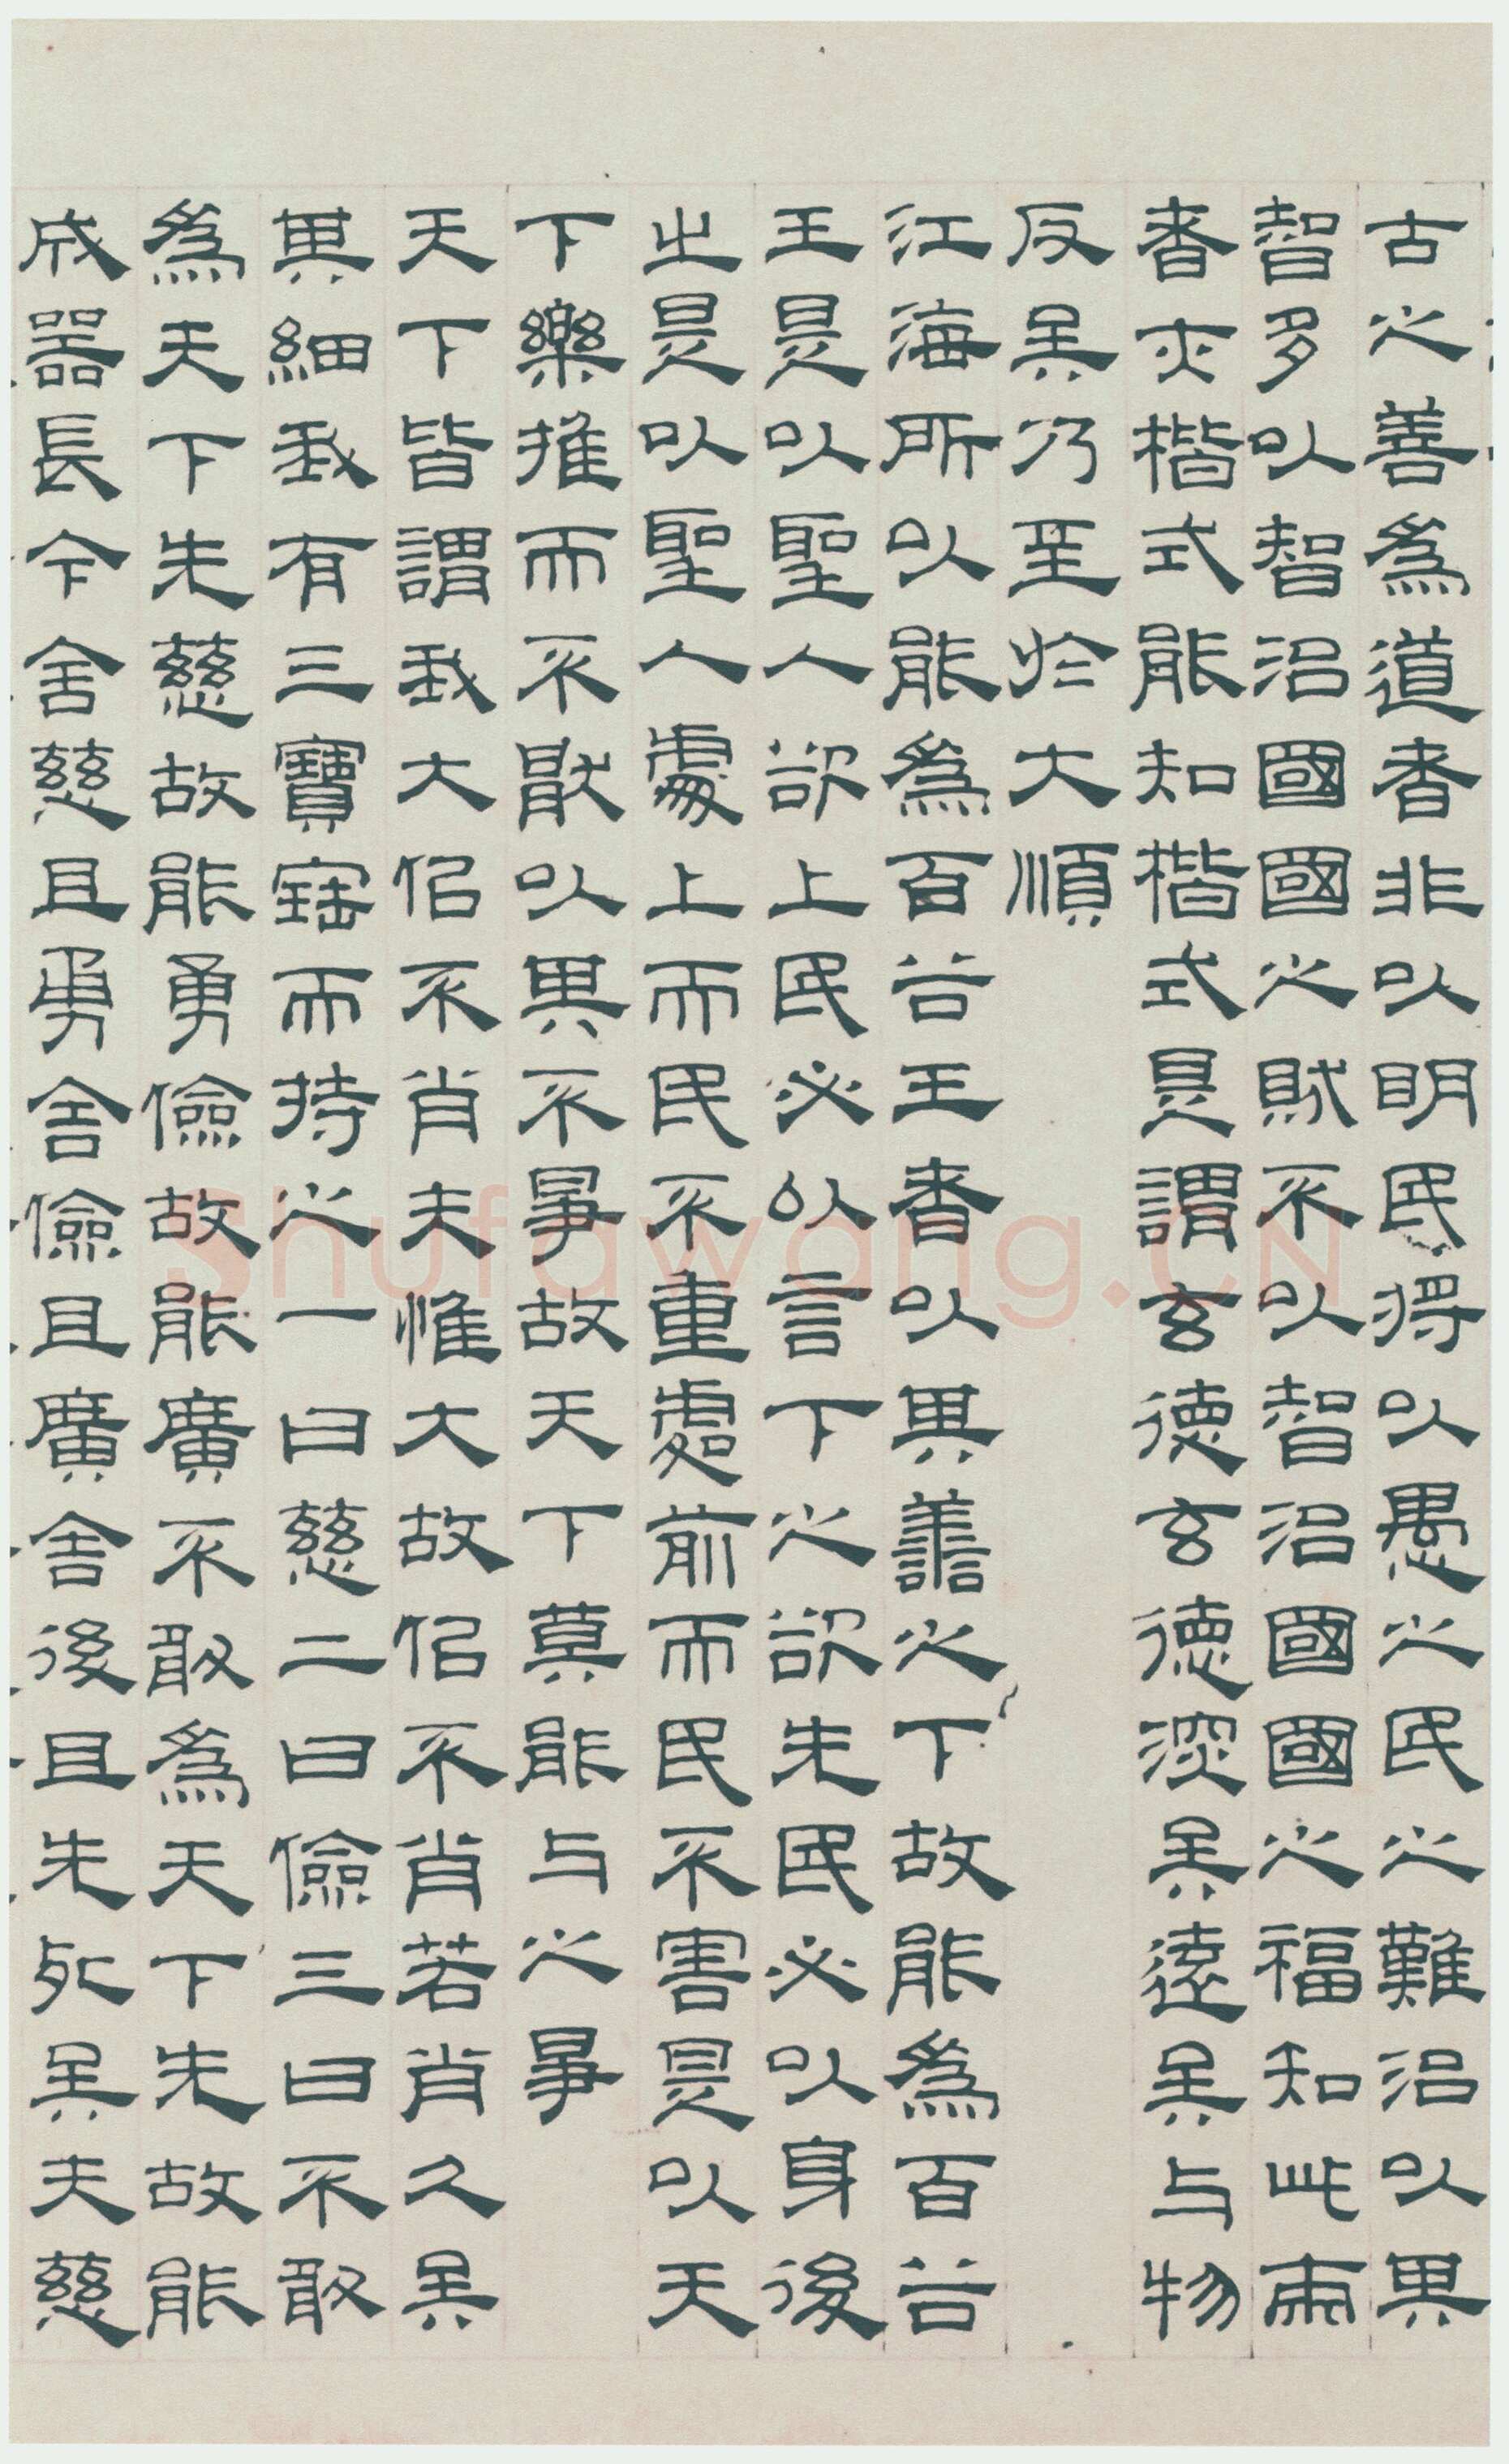 古之善爲道者非以明民将以愚之民之難治以其
智多以智治國國之賊不以智治國國之福知此兩
者亦楷式能知楷式是謂玄德玄德深矣遠矣与物
反矣乃至於大順
江海所以能爲百谷王者以其譱之下故能爲百谷
王是以聖人欲上民必以言下之欲先民必以身後
之是以聖人處上而民不重處前而民不害是以天
下樂推而不厭以其不爭故天下莫能与之爭
天下皆謂我大佀不肖夫惟大故佀不肖若肖久矣
其細我有三寶寶而持之一曰慈二曰儉三曰不敢
爲天下先慈故能勇儉故能廣不敢爲天下先故能
成器長今舍慈且勇舍儉且廣舍後且先死矣夫慈
Shufawang.CN